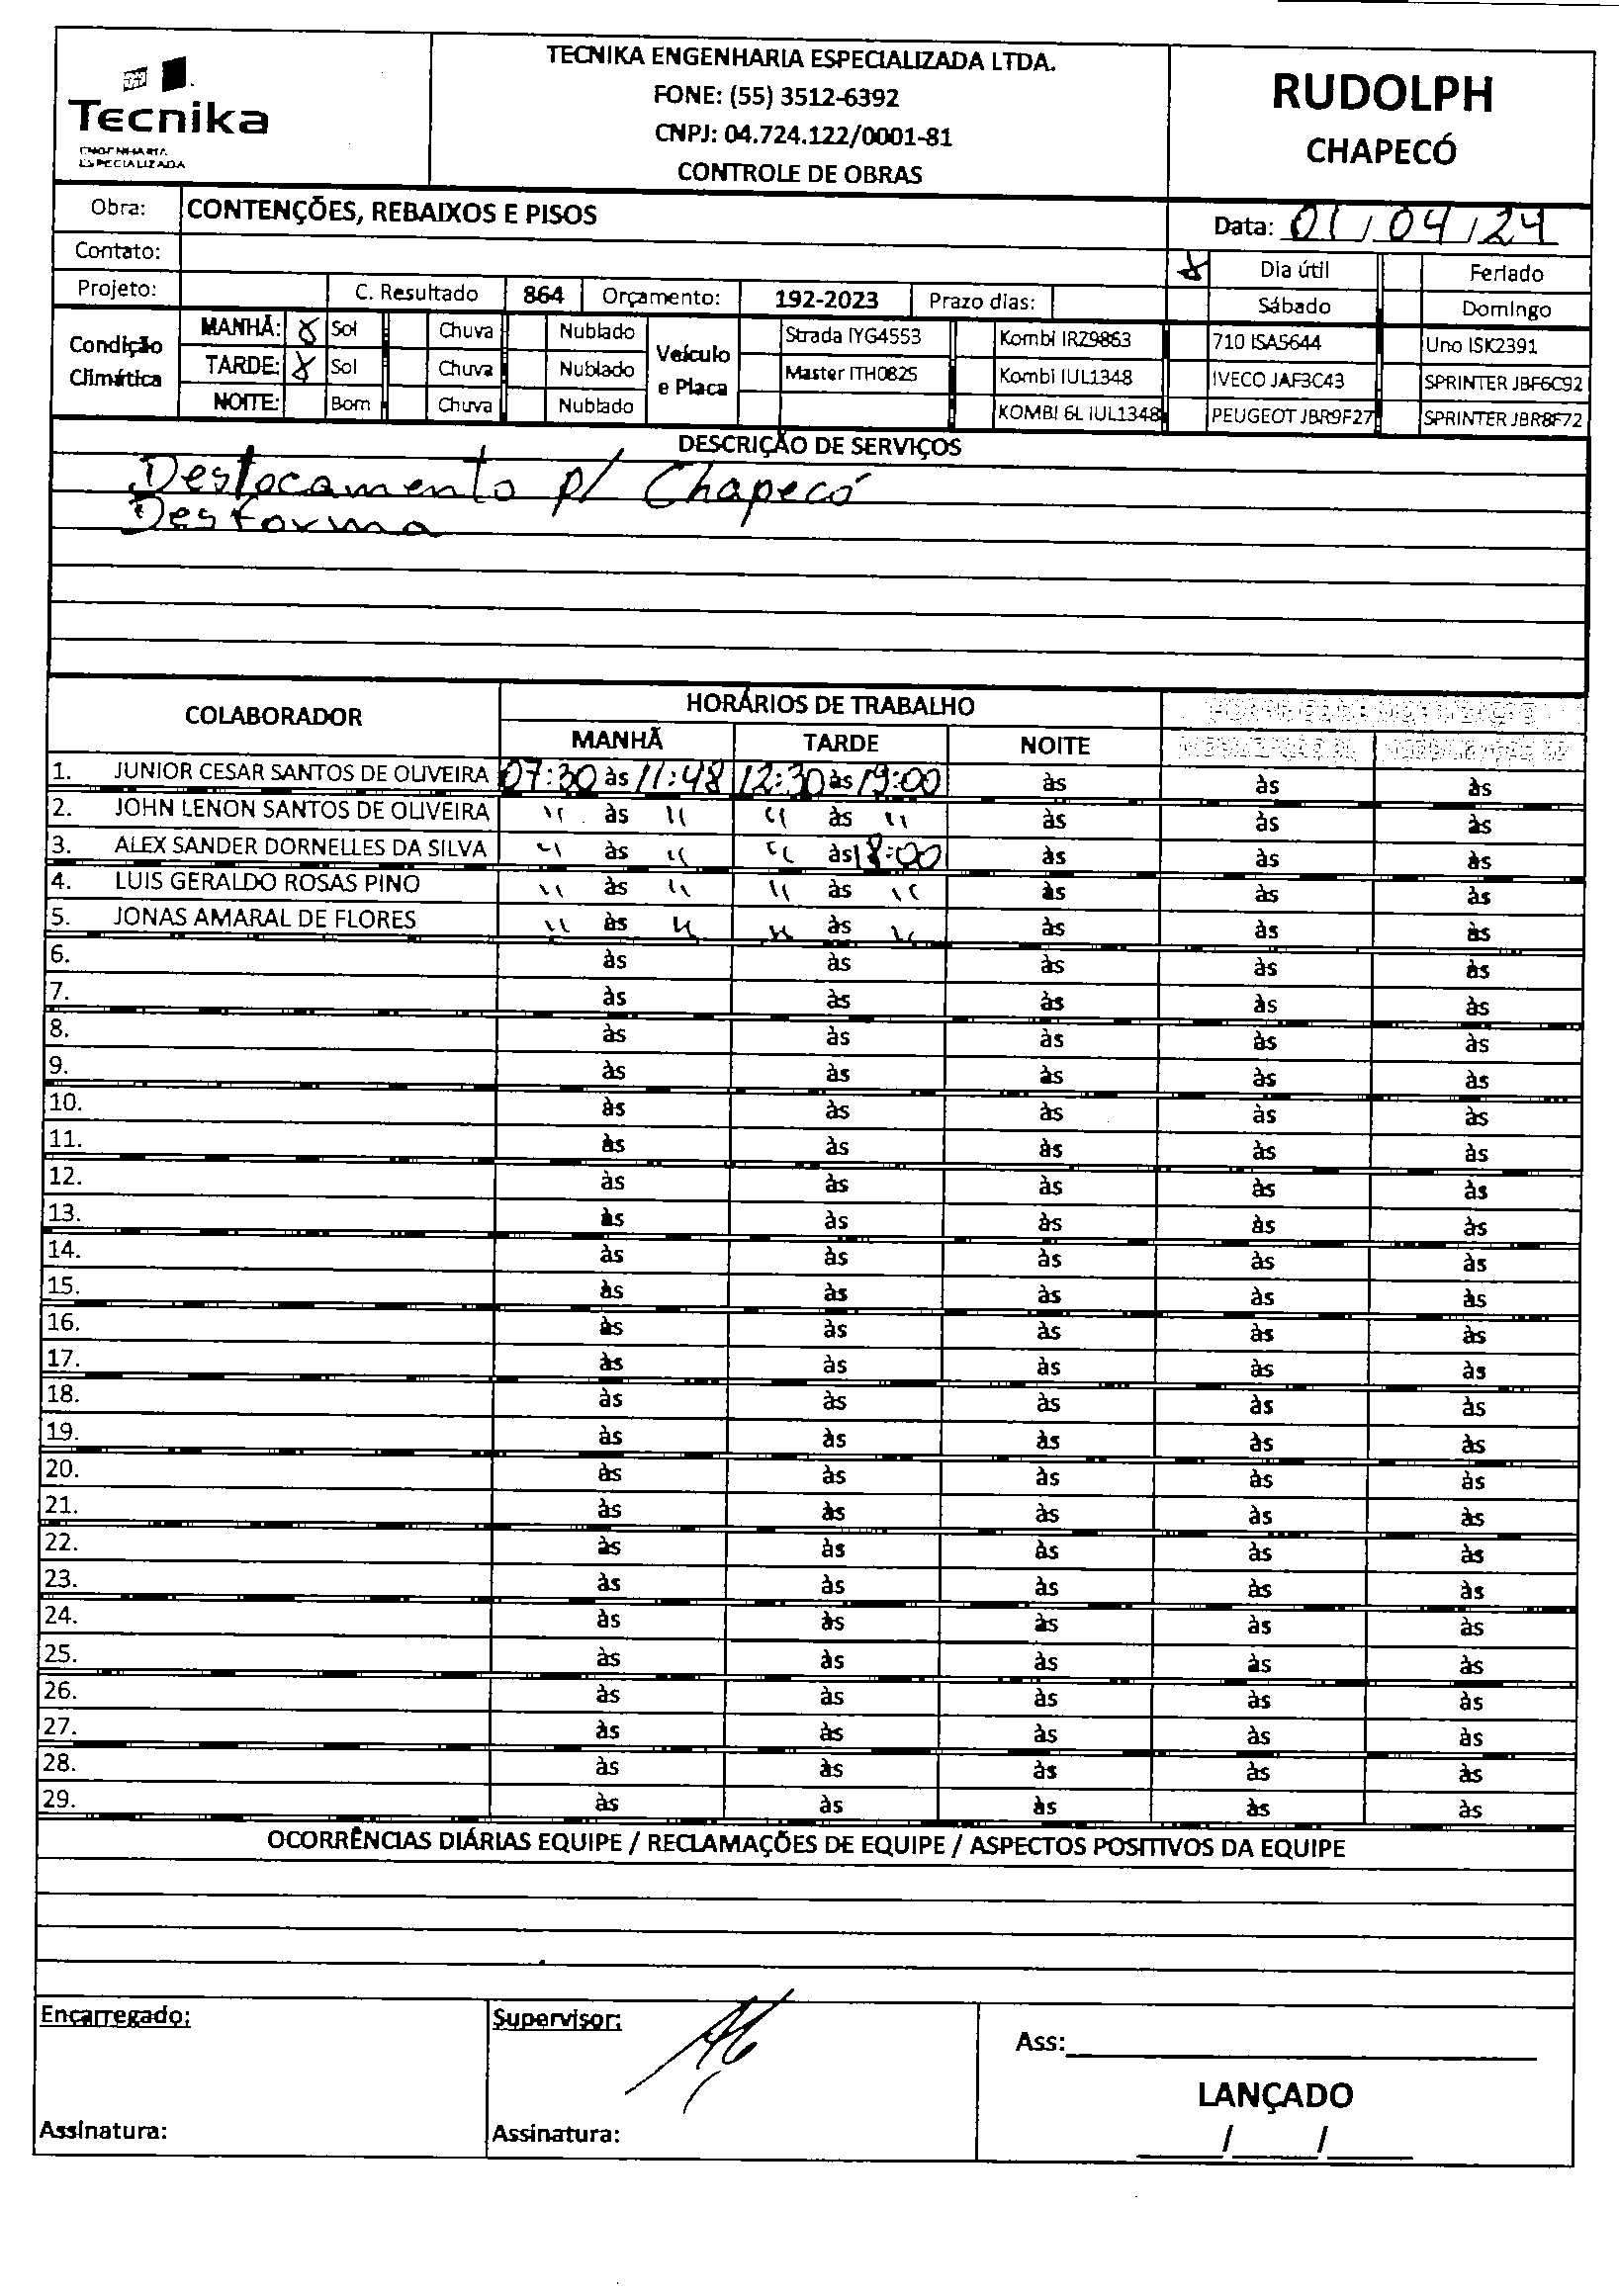 Tecnika
ENGENHARIA
ESPECIALIZADA
TECNIKA ENGENHARIA ESPECIALIZADA LTDA.
FONE: (55) 3512-6392
CNPJ: 04.724.122/0001-81
CONTROLE DE OBRAS
RUDOLPH
CHAPECÓ
Obra: CONTENÇÕES, REBAIXOS E PISOS
Data: 01/04/24
Contato:
X Dia útil Feriado
Projeto: C. Resultado 864 Orçamento: 192-2023 Prazo dias: Sábado Domingo
Condição Climática
MANHÃ: X Sol Chuva Nublado
TARDE: X Sol Chuva Nublado
NOITE: Bom Chuva Nublado
Veículo e Placa
Strada IYG4553 Kombi IRZ9863 710 ISA5644 Uno ISK2391
Master ITH0825 Kombi IUL1348 IVECO JAF3C43 SPRINTER JBF6C92
KOMBI 6L IUL1348 PEUGEOT JBR9F27 SPRINTER JBR8F72
DESCRIÇÃO DE SERVIÇOS
Deslocamento p/ Chapecó
Desforma
COLABORADOR HORÁRIOS DE TRABALHO
MANHÃ TARDE NOITE
1. JUNIOR CESAR SANTOS DE OLIVEIRA 07:30 às 11:48 12:30 às 19:00 às às às
2. JOHN LENON SANTOS DE OLIVEIRA " às " " às " às às às
3. ALEX SANDER DORNELLES DA SILVA " às " " às 18:00 às às às
4. LUIS GERALDO ROSAS PINO " às " " às " às às às
5. JONAS AMARAL DE FLORES " às " " às " às às às
6. às às às às às
7. às às às às às
8. às às às às às
9. às às às às às
10. às às às às às
11. às às às às às
12. às às às às às
13. às às às às às
14. às às às às às
15. às às às às às
16. às às às às às
17. às às às às às
18. às às às às às
19. às às às às às
20. às às às às às
21. às às às às às
22. às às às às às
23. às às às às às
24. às às às às às
25. às às às às às
26. às às às às às
27. às às às às às
28. às às às às às
29. às às às às às
OCORRÊNCIAS DIÁRIAS EQUIPE / RECLAMAÇÕES DE EQUIPE / ASPECTOS POSITIVOS DA EQUIPE
Encarregado: Supervisor:
Ass:
LANÇADO
Assinatura: Assinatura:
/ /